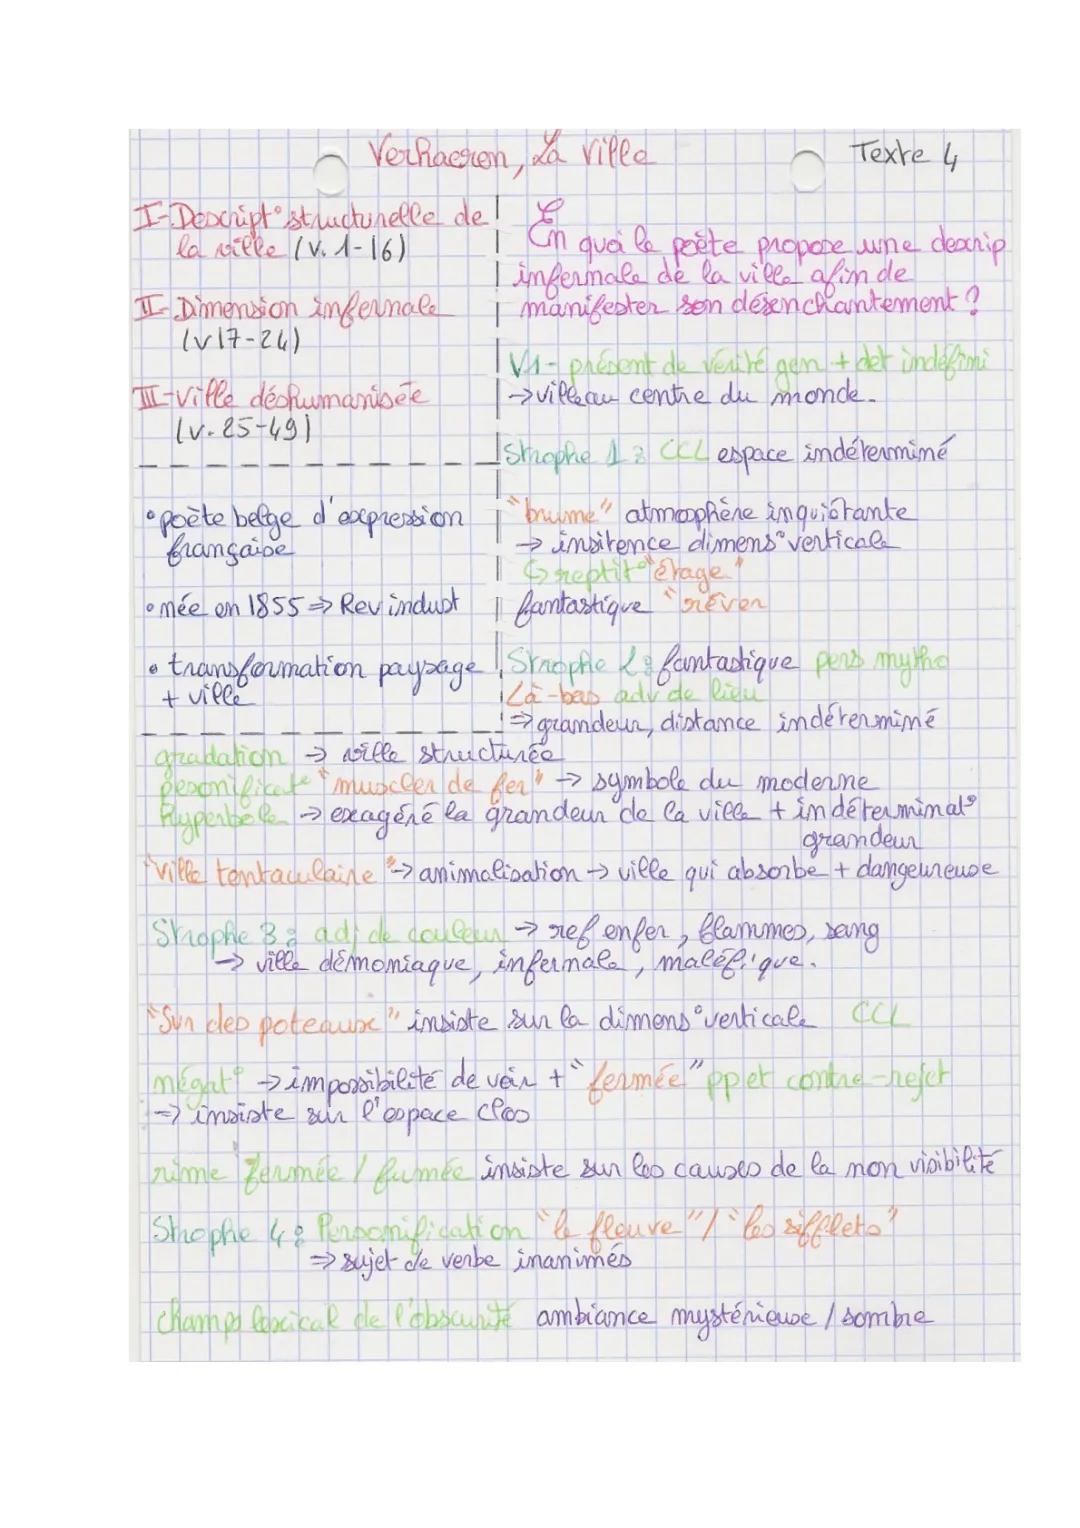 Verhaeren, La ville
Texte 4
I-Descript° structurelle de
la ville (v. 1-16)
II-Dimension infernale
(v 17-24)
III-Ville déshumanisée
(v. 25-49)
• poète belge d'expression
française
• née en 1855 ⇒ Rev indust
• transformation paysage
+ ville
En quoi le poète propose une descrip
infernale de la ville afin de
manifester son désenchantement ?
V1 - présent de vérité gen + det indéfini
→ ville au centre du monde.
Strophe 1 : CCL espace indéterminé
"brume" atmosphère inquiétante
→ insitence dimens° verticale
↳ reptit° "étage"
fantastique "rêver
Strophe 2 : fantastique pers mytho
Là-bas adv de lieu
⇒ grandeur, distance indéterminé
gradation → ville structurée
pesonificate "muscles de fer" → symbole du moderne
Hyperbole → exagéré la grandeur de la ville + indéterminat°
grandeur
"Ville tentaculaire" → animalisation → ville qui absorbe + dangeureuse
Strophe 3 : adj de couleur → ref enfer, flammes, sang
→ ville démoniaque, infernale, maléfique.
"Sur des poteaux" insiste sur la dimens° verticale CCL
négat° → impossibilité de voir + "fermée" pp et contre-rejet
⇒ insiste sur l'espace clos
rime fermée / fumée insiste sur les causes de la non visibilité
Strophe 4 : Personnification "le fleuve" / "les sifflets"
⇒ sujet de verbe inanimés
champs lexical de l'obscurité ambiance mystérieuse / sombre